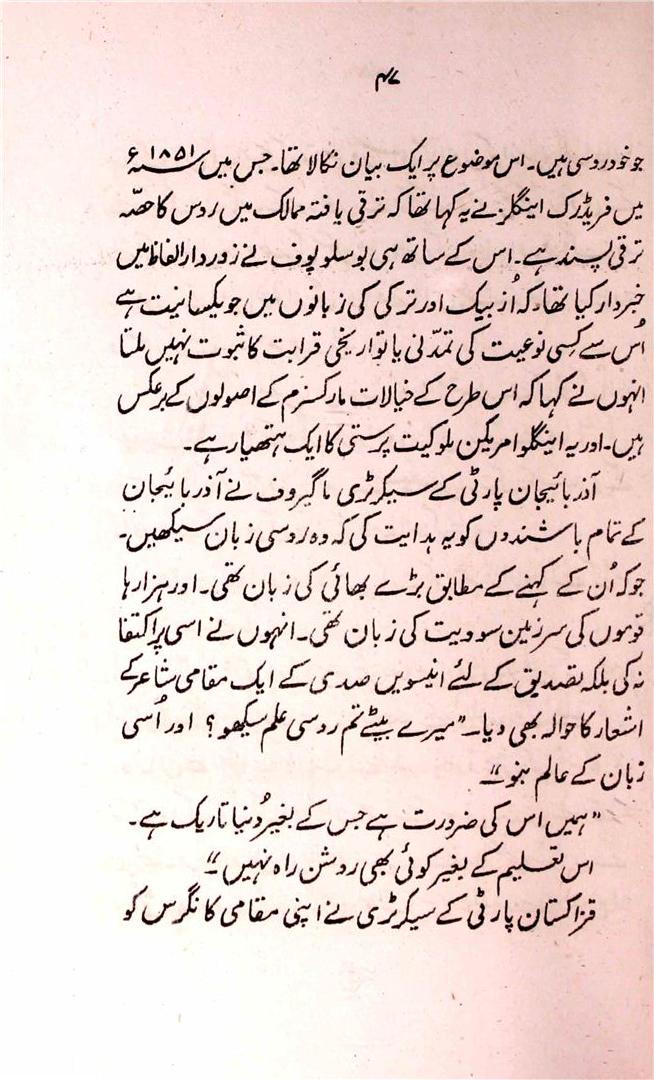 ۴۷
جو خود روسی ہیں۔ اس موضوع پر ایک بیان نکالا تھا۔ جس میں ۱۸۵۱ء
میں فریڈرک اینگلز نے یہ کہا تھا کہ ترقی یافتہ ممالک میں روس کا حصّہ
ترقی پسند ہے۔ اس کے ساتھ ہی بوسلوپوف نے زوردار الفاظ میں
خبردار کیا تھا، کہ اُزبیک اور ترکی کی زبانوں میں جو یکسانیت ہے
اُس سے کسِی نوعیت کی تمدّنی یا تواریخی قرابت کا ثبوت نہیں ملتا
انہوں نے کہا کہ اس طرح کے خیالات مارکسزم کے اصولوں کے برعکس
ہیں۔ اور یہ اینگلو امریکن ملوکیت پرستی کا ایک ہتھیار ہے۔
آذربائیجان پارٹی کے سیکرٹری ماگیروف نے آذربائیجان
کے تمام باشندوں کو یہ ہدایت کی کہ وہ روسی زبان سیکھیں۔
جو کہ اُن کے کہنے کے مطابق بڑے بھائی کی زبان تھی۔ اور ہزارہا
قوموں کی سرزمین سوویت کی زبان تھی۔ انہوں نے اسی پر اکتفا
نہ کی بلکہ تصدیق کے لئے انیسویں صدی کے ایک مقامی شاعر کے
اشعار کا حوالہ بھی دیا۔ "میرے بیٹے تم روسی علم سیکھو؟ اور اُسی
زبان کے عالم بنو"۔
"ہمیں اس کی ضرورت ہے جس کے بغیر دُنیا تاریک ہے۔
اس تعلیم کے بغیر کوئی بھی روشن راہ نہیں"۔
قزاکستان پارٹی کے سیکرٹری نے اپنی مقامی کانگرس کو